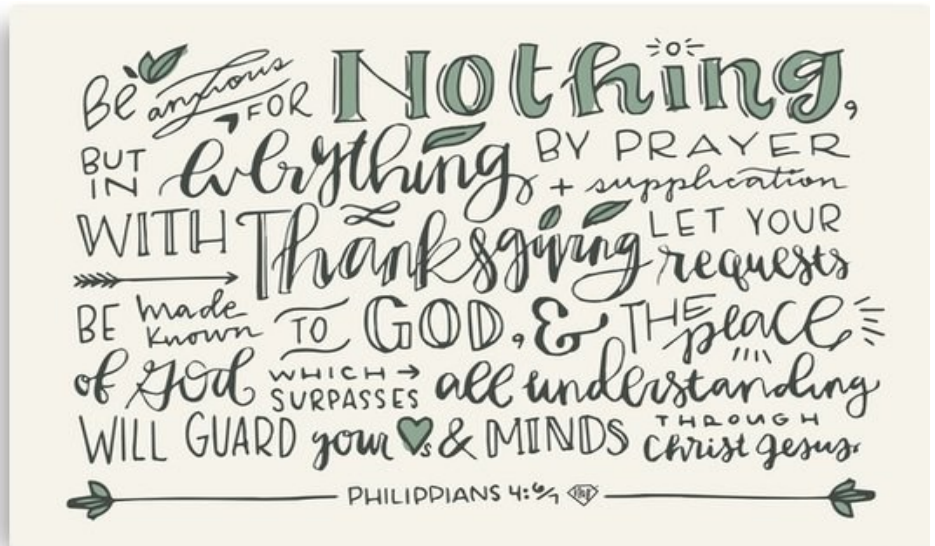 Be anxious FOR Nothing,
BUT IN everything BY PRAYER + supplication
WITH Thanksgiving LET YOUR requests
BE made known TO GOD, & THE peace
of God WHICH → SURPASSES all understanding
WILL GUARD your ♥s & MINDS THROUGH Christ Jesus.
PHILIPPIANS 4:6/7